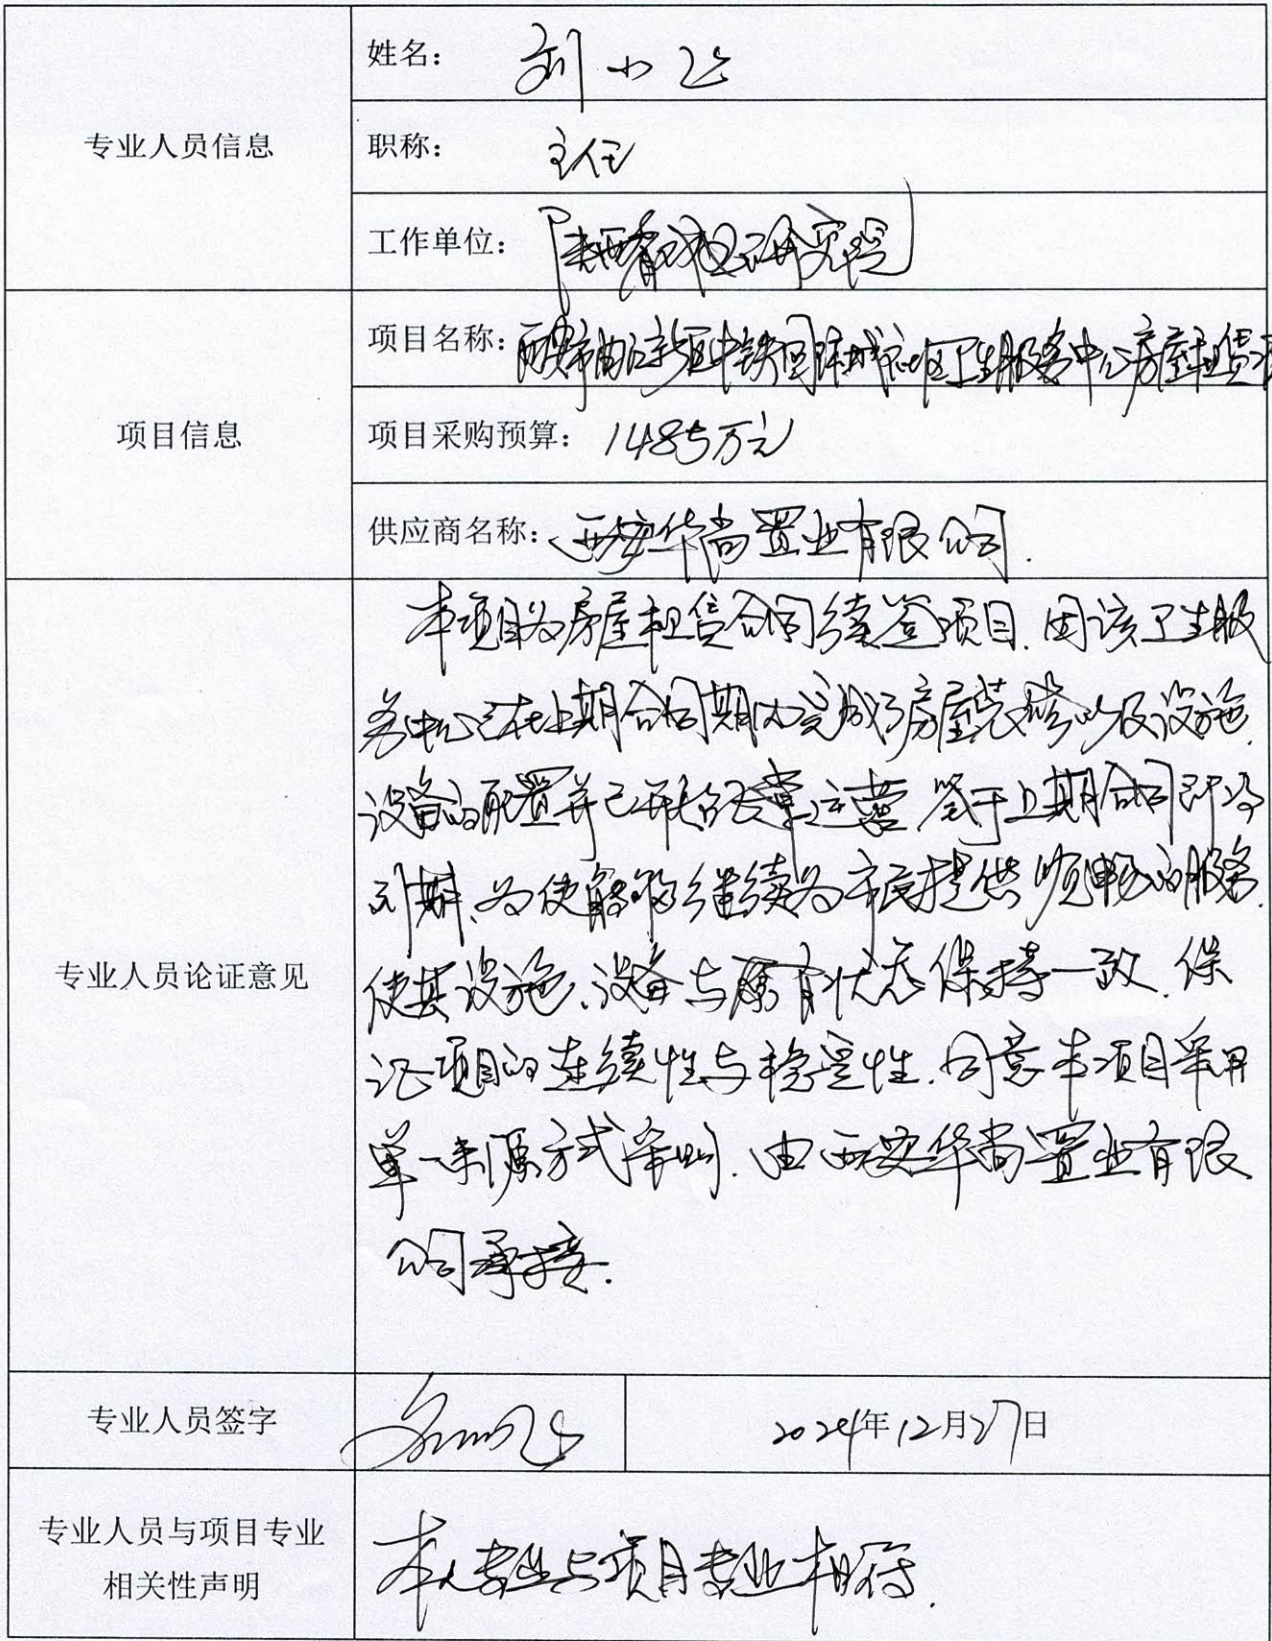 专业人员信息
姓名：刘小飞
职称：主任
工作单位：陕西省社区研究院
项目信息
项目名称：西安市曲江新区中铁国际城社区卫生服务中心房屋租赁项
项目采购预算：1485万元
供应商名称：西安华尚置业有限公司.
专业人员论证意见
本项目为房屋租赁合同续签项目.因该卫生服
务中心已在上期合同期内完成了房屋装修以及设施、
设备的配置并已开展日常运营.鉴于上期合同即将
到期、为使能够继续为市民提供顺畅的服务.
使其设施、设备与原有状态保持一致.保
证项目的连续性与稳定性.同意本项目采用
单一来源方式采购.由西安华尚置业有限
公司承接.
专业人员签字
2024年12月27日
专业人员与项目专业
相关性声明
本人专业与项目专业相符.